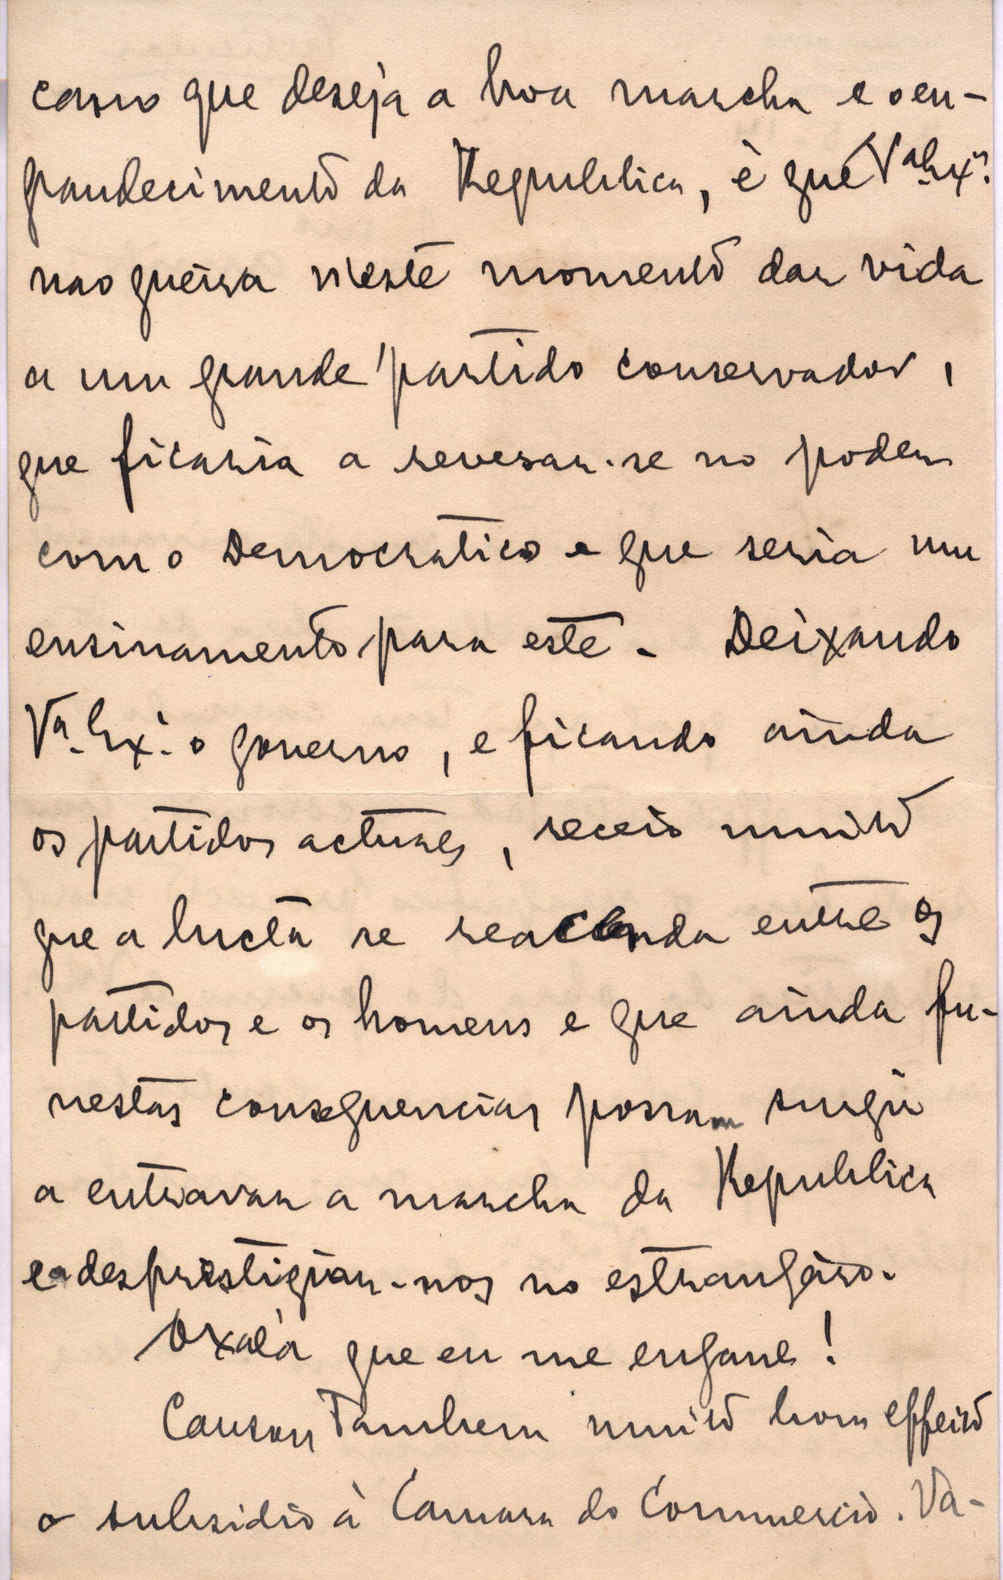 como que deseja a boa marcha e o en-
grandecimento da Republica, è que Vª Exª
nao queira n'este momento dar vida
a um grande partido conservador,
que ficaria a revesar-se no poder
com o Democratico e que seria um
ensinamento para este. Deixando
Vª. Exª. o governo, e ficando ainda
os partidos actuaes, receio muito
que a lucta se reacenda entre os
partidos e os homens e que ainda fu-
nestas consequencias possam surgir
a entravar a marcha da Republica
e a desprestigiar-nos no estrangeiro.
Oxalá que eu me engane!
Causou Tambem muito bom effeito
o subsidio à Camara do Commercio. Va-